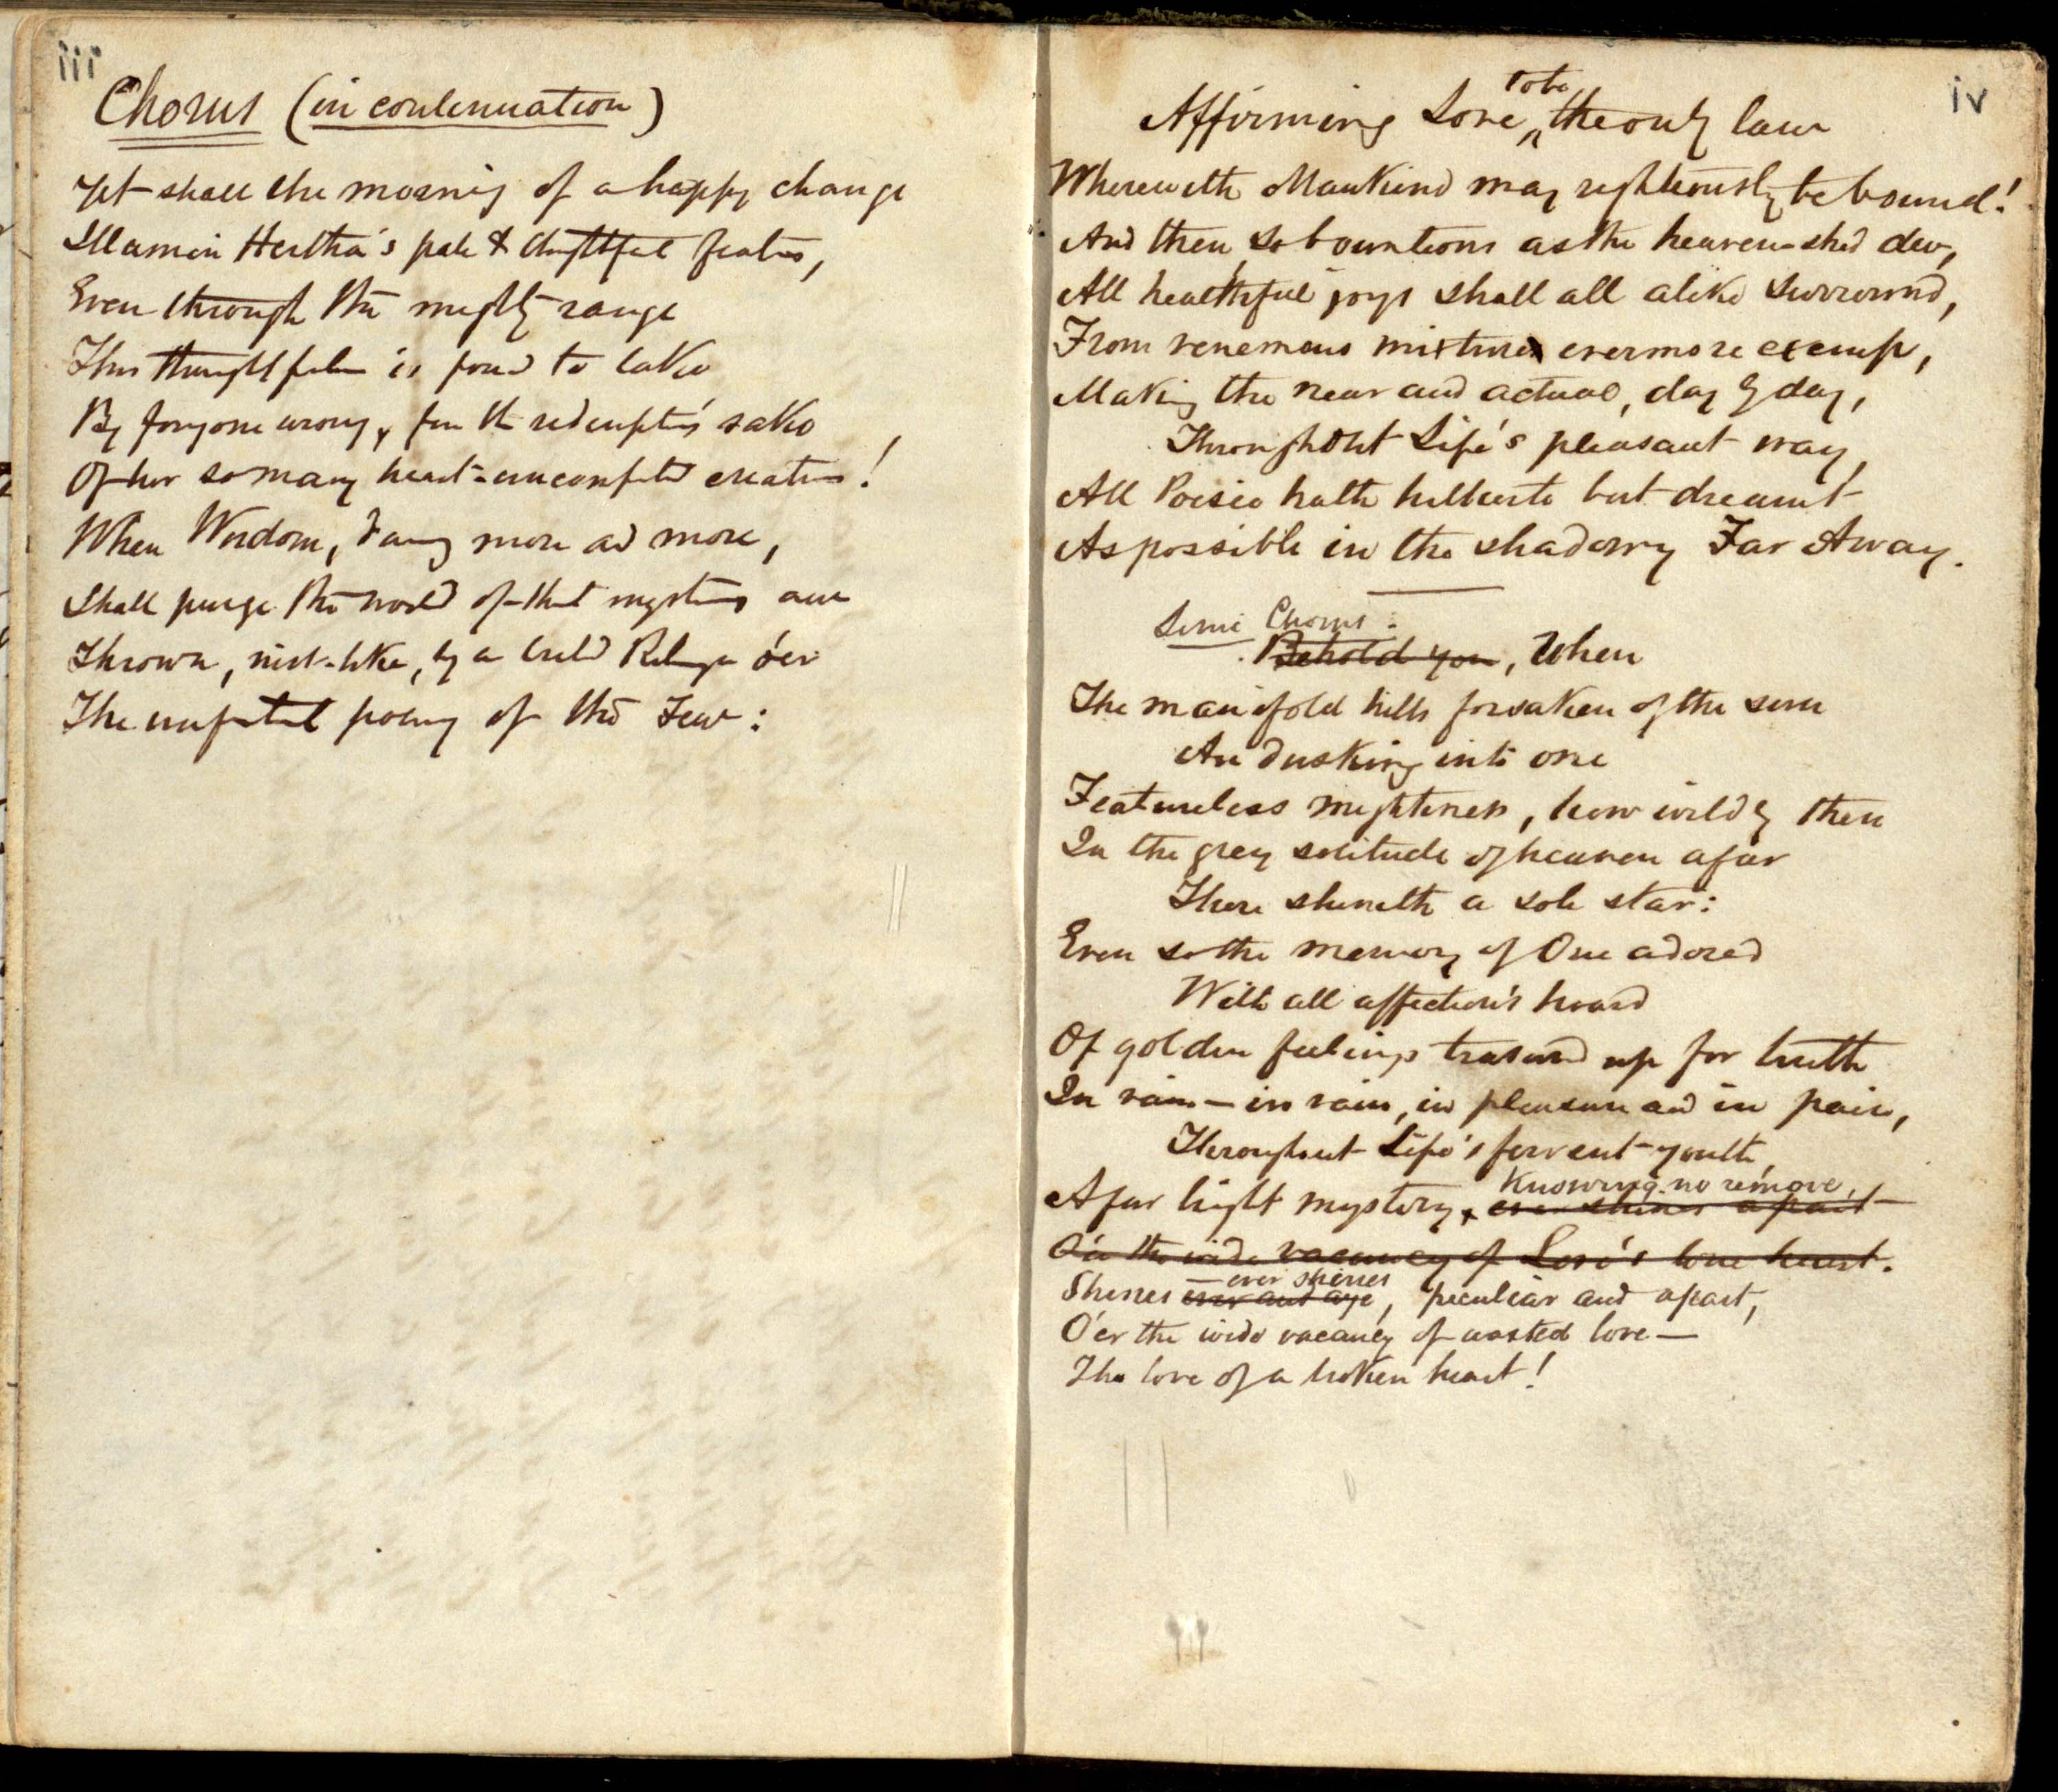 iii
Chorus (in continuation)
Yet shall the morning of a happy change
Illumin Hertha's pale & thoughtful features,
Even through the mighty range
This thoughtful is found to take
By foregone wrong, for the redemption's sake
Of her so many heart-uncomforted creatures!
When Wisdom, dawning more and more,
Shall purge the world of that mysterious awe
Thrown, mist-like, by a Creed Religion o'er
The unfruitful poring of the Few:
iv
Affirming Love to be the only law
Wherewith Mankind may righteously be bound!
And then, so bounteous as the heaven-shed dew,
All healthful joys shall all alike surround,
From venemous mixture evermore exempt,
Making the near and actual, day by day,
Throughout Life's pleasant way,
All Poesie hath hitherto but dreamt
As possible in the shadowy Far Away.
Semi Chorus:
Behold you, When
The manifold hills forsaken of the sun
Are dusking into one
Featureless mightiness, how wildly then
In the grey solitude of heaven afar
There shineth a sole star:
Even so the memory of One adored
With all affection's hoard
Of golden feelings treasured up for truth
In vain—in vain, in pleasure and in pain,
Throughout Life's fervent youth,
Knowing no remove,
A far bright mystery, ever shines apart
O'er the wide vacancy of Love's lone heart.
—ever shines
Shines ever and aye, peculiar and apart,
O'er the wide vacancy of wasted love—
The love of a broken heart!